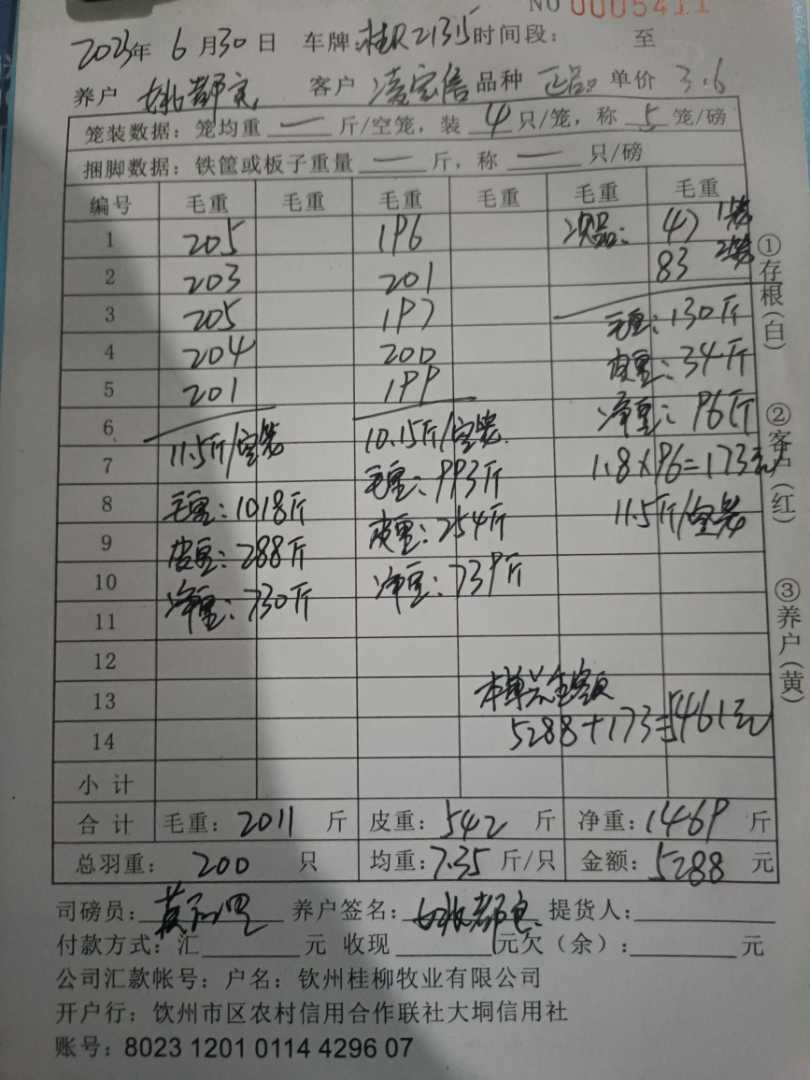 NO 0005411
2023年 6月30日 车牌:桂R21315时间段: 至
养户 客户 凌宝信 品种 正品 单价 3.6
笼装数据:笼均重 一 斤/空笼,装 4 只/笼,称 5 笼/磅
捆脚数据:铁筐或板子重量 一 斤,称 一 只/磅
编号 毛重 毛重 毛重 毛重 毛重 毛重
1 205 196 次品: 47 1笼
2 203 201 83 2笼
3 205 197 毛重:130斤
4 204 200 皮重:34斤
5 201 199 净重:96斤
6 11.5斤/空笼 10.15斤/空笼
7 毛重:993斤 1.8×96=173元
8 毛重:1018斤 皮重:254斤 11.5斤/空笼
9 皮重:288斤
10 净重:739斤
11 净重:730斤
12
13 本单总金额
14 5288+173=5461元
小计
合计 毛重:2011 斤 皮重:542 斤 净重:1469 斤
总羽重:200 只 均重:7.35 斤/只 金额:5288 元
司磅员: 养户签名: 提货人:
付款方式:汇 元 收现 元欠(余): 元
公司汇款帐号:户名:钦州桂柳牧业有限公司
开户行:钦州市区农村信用合作联社大垌信用社
账号:8023 1201 0114 4296 07
①存根(白)
②客户(红)
③养户(黄)